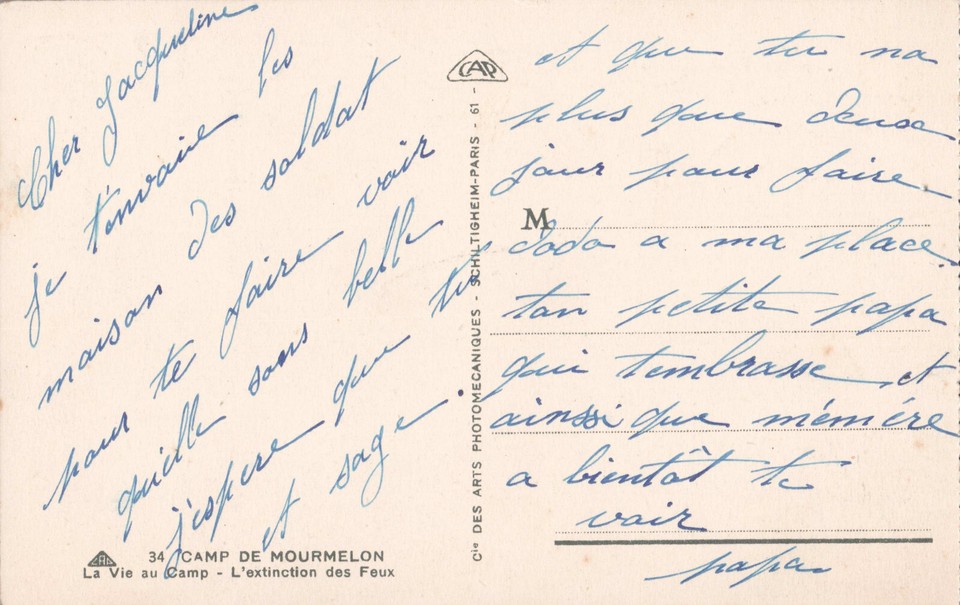 Cher Jacqueline
je t'envoie les
maison des soldat
pour te faire voir
qu'elle sons belle
j'espere que tu
et sage.
CAP
34 CAMP DE MOURMELON
La Vie au Camp - L'extinction des Feux
Cie DES ARTS PHOTOMECANIQUES - SCHILTIGHEIM-PARIS - 61 -
CAP
M
et que tu na
plus que deux
jour pour faire
dodo a ma place.
ton petite papa
qui t'embrasse et
ainssi que mémére
a bientôt te
voir
papa